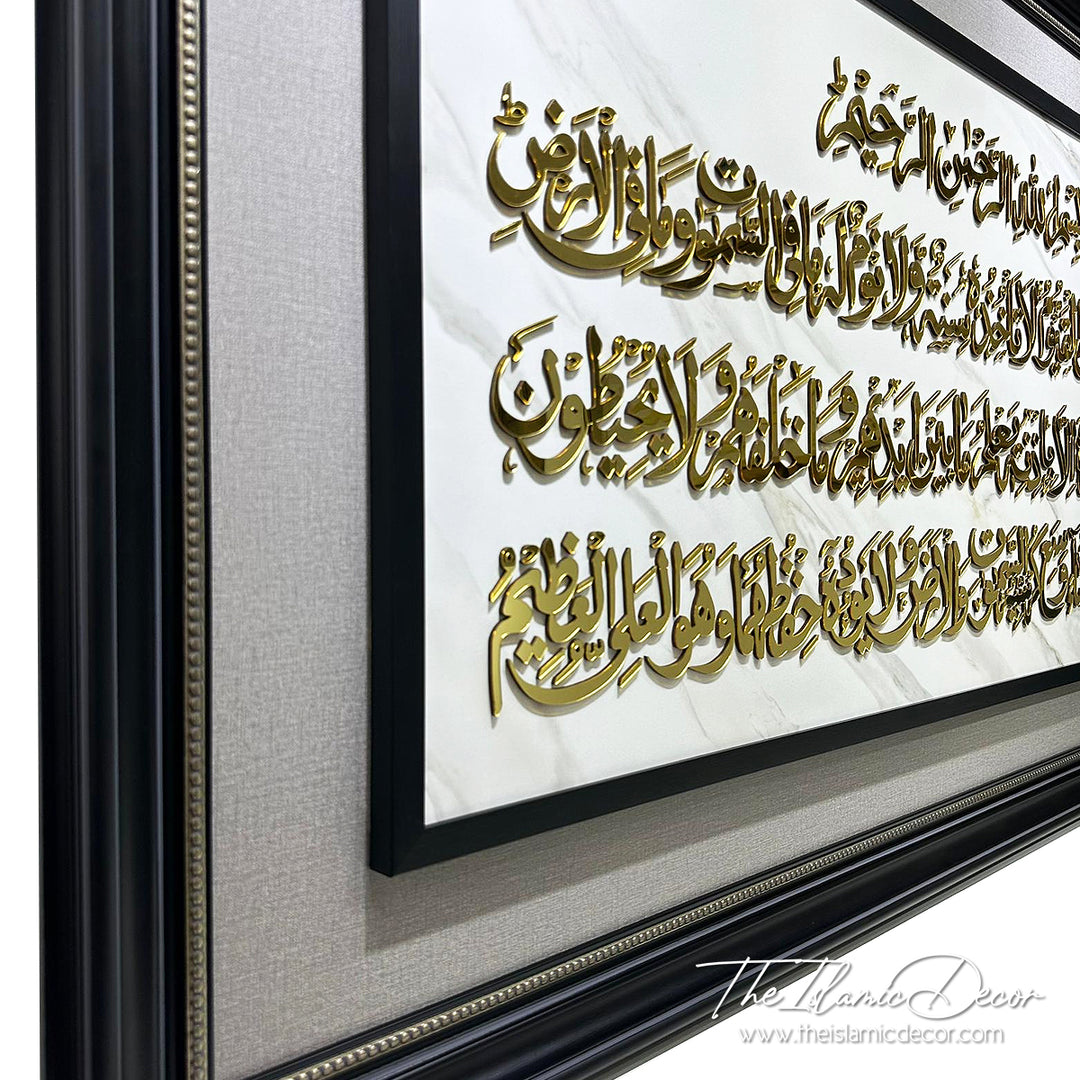 بِسْمِ اللهِ الرَّحْمٰنِ الرَّحِيْمِ
الْقَيُّوْمُ لَا تَأْخُذُهٗ سِنَةٌ وَّلَا نَوْمٌ لَهٗ مَا فِي السَّمٰوٰتِ وَمَا فِي الْاَرْضِ
اِلَّا بِاِذْنِهٖ يَعْلَمُ مَا بَيْنَ اَيْدِيْهِمْ وَمَا خَلْفَهُمْ وَلَا يُحِيْطُوْنَ
وَسِعَ كُرْسِيُّهُ السَّمٰوٰتِ وَالْاَرْضَ وَلَا يَئُوْدُهٗ حِفْظُهُمَا وَهُوَ الْعَلِيُّ الْعَظِيْمُ
The Islamic Decor
www.theislamicdecor.com